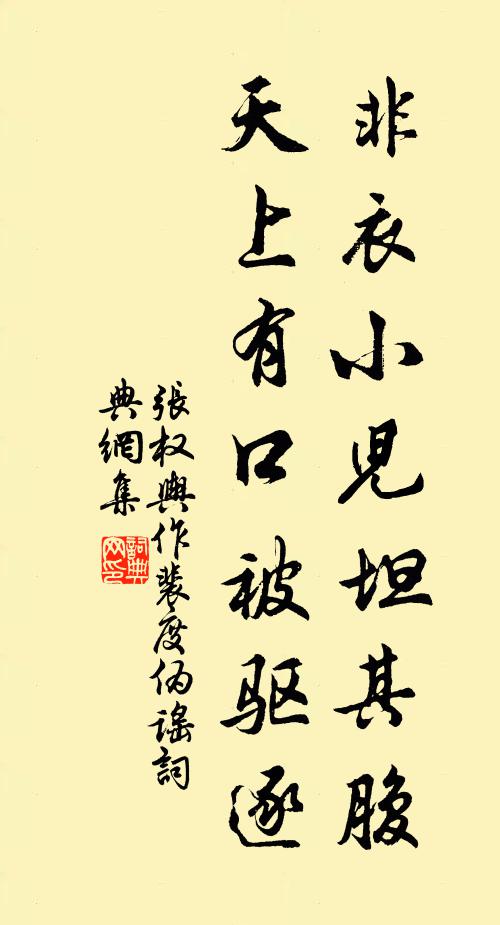 非衣小児坦其腹
天上有口被驱逐
張权輿作裴度伪謡詞
典網集
詞典网印